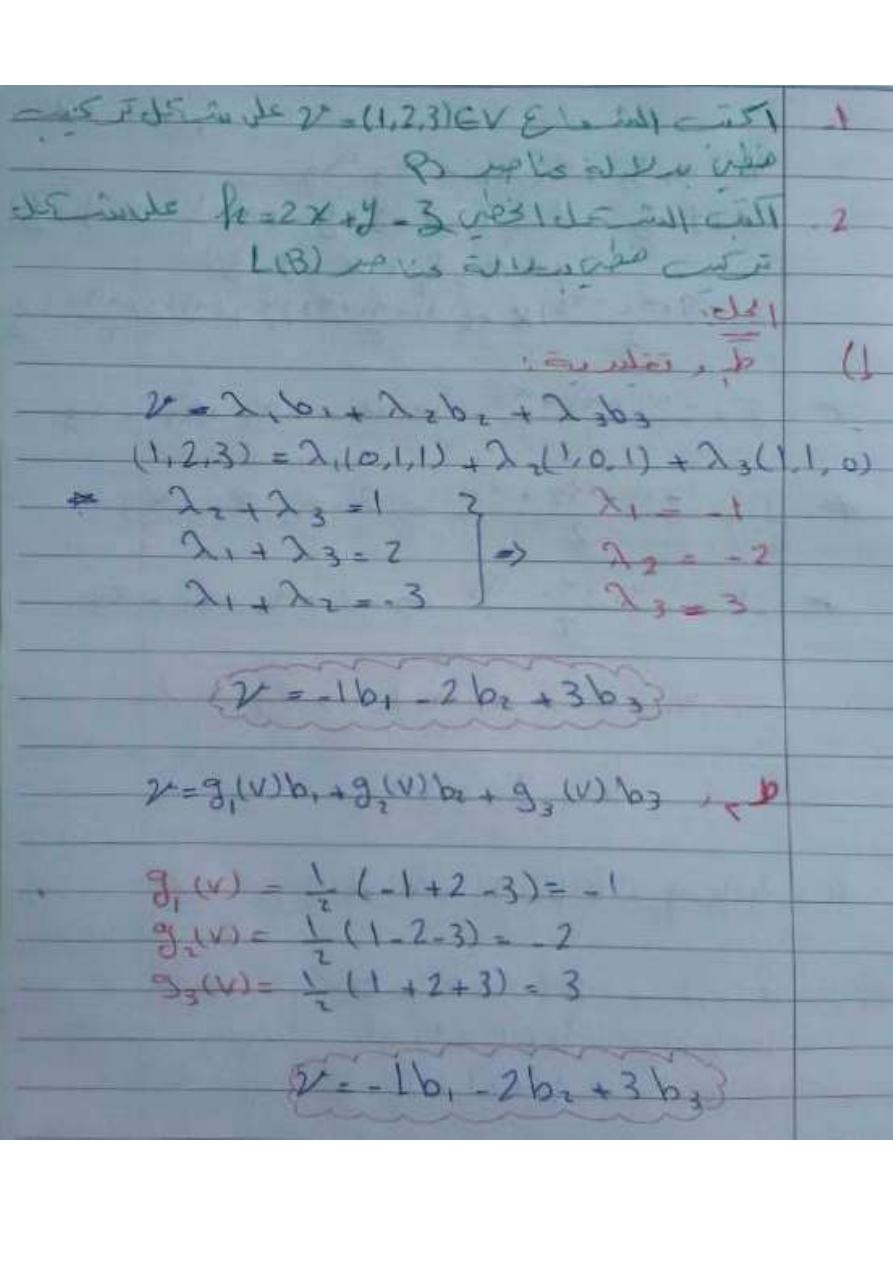 1- اكتب الشعاع v = (1,2,3) ∈ V على شكل تركيب
خطي بدلالة عناصر B
2- اكتب الشكل الخطي h = 2x + y - 3z على شكل
تركيب خطي بدلالة عناصر L(B)
الحل:
1) ط1 تقليدية:
v = λ1b1 + λ2b2 + λ3b3
(1,2,3) = λ1(0,1,1) + λ2(1,0,1) + λ3(1,1,0)
* λ2 + λ3 = 1 λ1 = -1
λ1 + λ3 = 2 } => λ2 = -2
λ1 + λ2 = -3 λ3 = 3
v = -1b1 - 2b2 + 3b3
ط2 v = g1(v)b1 + g2(v)b2 + g3(v)b3
g1(v) = 1/2 (-1+2-3) = -1
g2(v) = 1/2 (1-2-3) = -2
g3(v) = 1/2 (1+2+3) = 3
v = -1b1 - 2b2 + 3b3